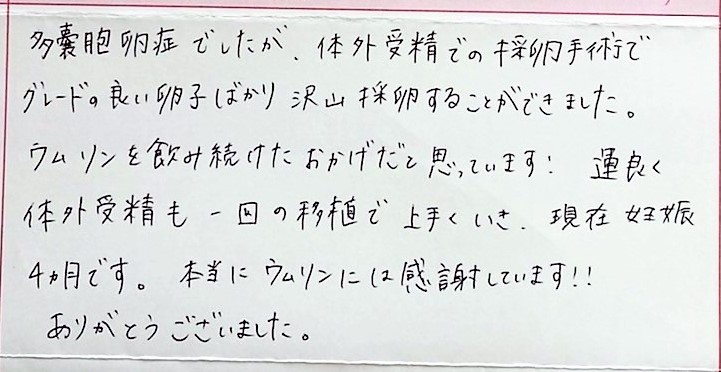 多嚢胞卵症でしたが、体外受精での採卵手術で
グレードの良い卵子ばかり沢山採卵することができました。
ウムリンを飲み続けたおかげだと思っています! 運良く
体外受精も一回の移植で上手くいき、現在妊娠
4ヵ月です。本当にウムリンには感謝しています!!
ありがとうございました。